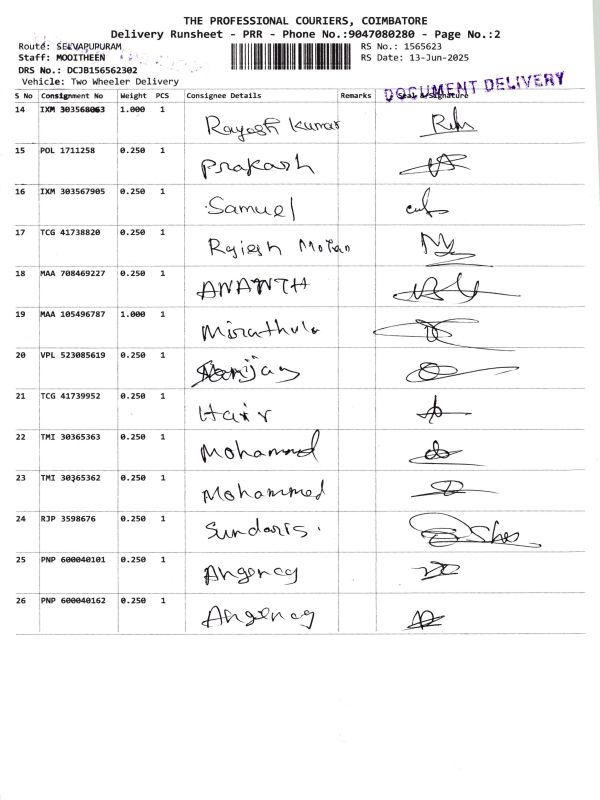 THE PROFESSIONAL COURIERS, COIMBATORE
Delivery Runsheet - PRR - Phone No.:9047080280 - Page No.:2
Route: SELVAPUPURAM RS No.: 1565623
Staff: MOOITHEEN RS Date: 13-Jun-2025
DRS No.: DCJB156562302
Vehicle: Two Wheeler Delivery
DOCUMENT DELIVERY
S No Consignment No Weight PCS Consignee Details Remarks Seal & Signature
14 IXM 303568063 1.000 1 Rayesh Kumar
15 POL 1711258 0.250 1 Prakash
16 IXM 303567905 0.250 1 Samuel
17 TCG 41738820 0.250 1 Rajesh Mohan
18 MAA 708469227 0.250 1 ANANTH
19 MAA 105496787 1.000 1 Mirathula
20 VPL 523085619 0.250 1
21 TCG 41739952 0.250 1 Hair
22 TMI 30365363 0.250 1 Mohammed
23 TMI 30365362 0.250 1 Mohammed
24 RJP 3598676 0.250 1 Sundaris.
25 PNP 600040101 0.250 1 Angency
26 PNP 600040162 0.250 1 Angency